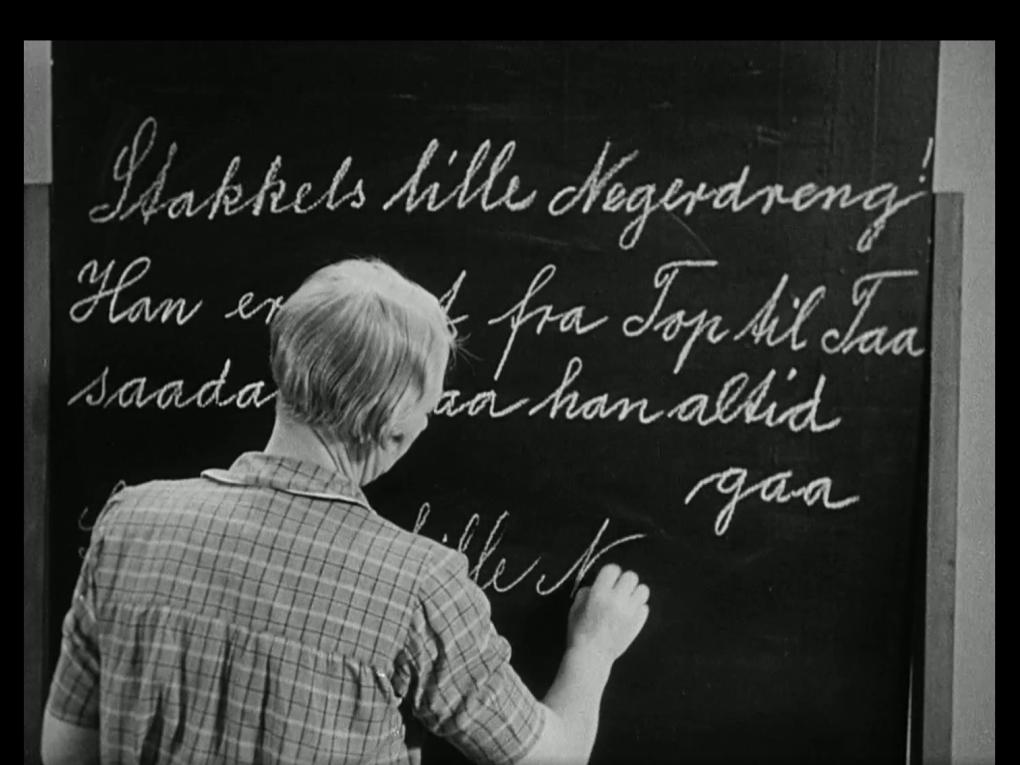 Stakkels lille Negerdreng!
Han er fra Top til Taa
han altid
gaa
lille N